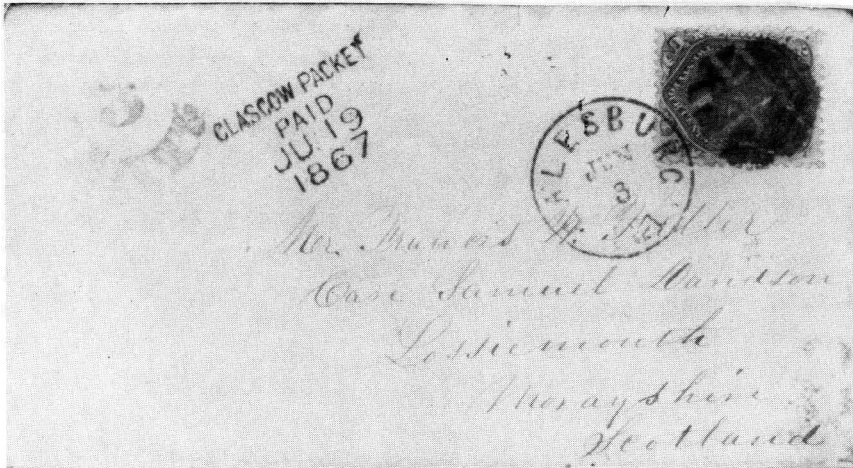 GLASGOW PACKET
PAID
JU 19
1867
ALESBURG
JUN
3
Mr. Francis W.
Care Samuel Davidson
Lossiemouth
Morayshire
Scotland